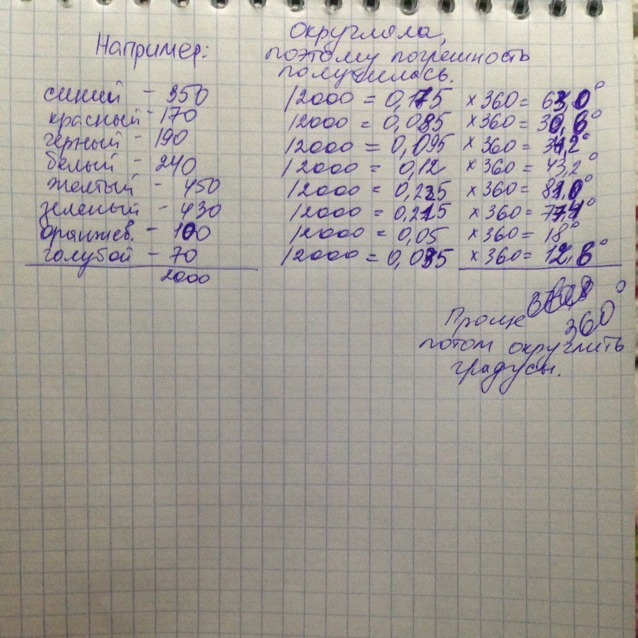 Например:
Округляла,
поэтому погрешность
получилась.
синий - 350 /2000 = 0,175 ×360 = 63,0°
красный - 170 /2000 = 0,085 ×360 = 30,6°
чёрный - 190 /2000 = 0,095 ×360 = 34,2°
белый - 240 /2000 = 0,12 ×360 = 43,2°
желтый - 450 /2000 = 0,225 ×360 = 81,0°
зеленый - 430 /2000 = 0,215 ×360 = 77,4°
оранжев. - 100 /2000 = 0,05 ×360 = 18°
голубой - 70 /2000 = 0,035 ×360 = 12,6°
2000
Проще 360°
потом округлить
градусы.